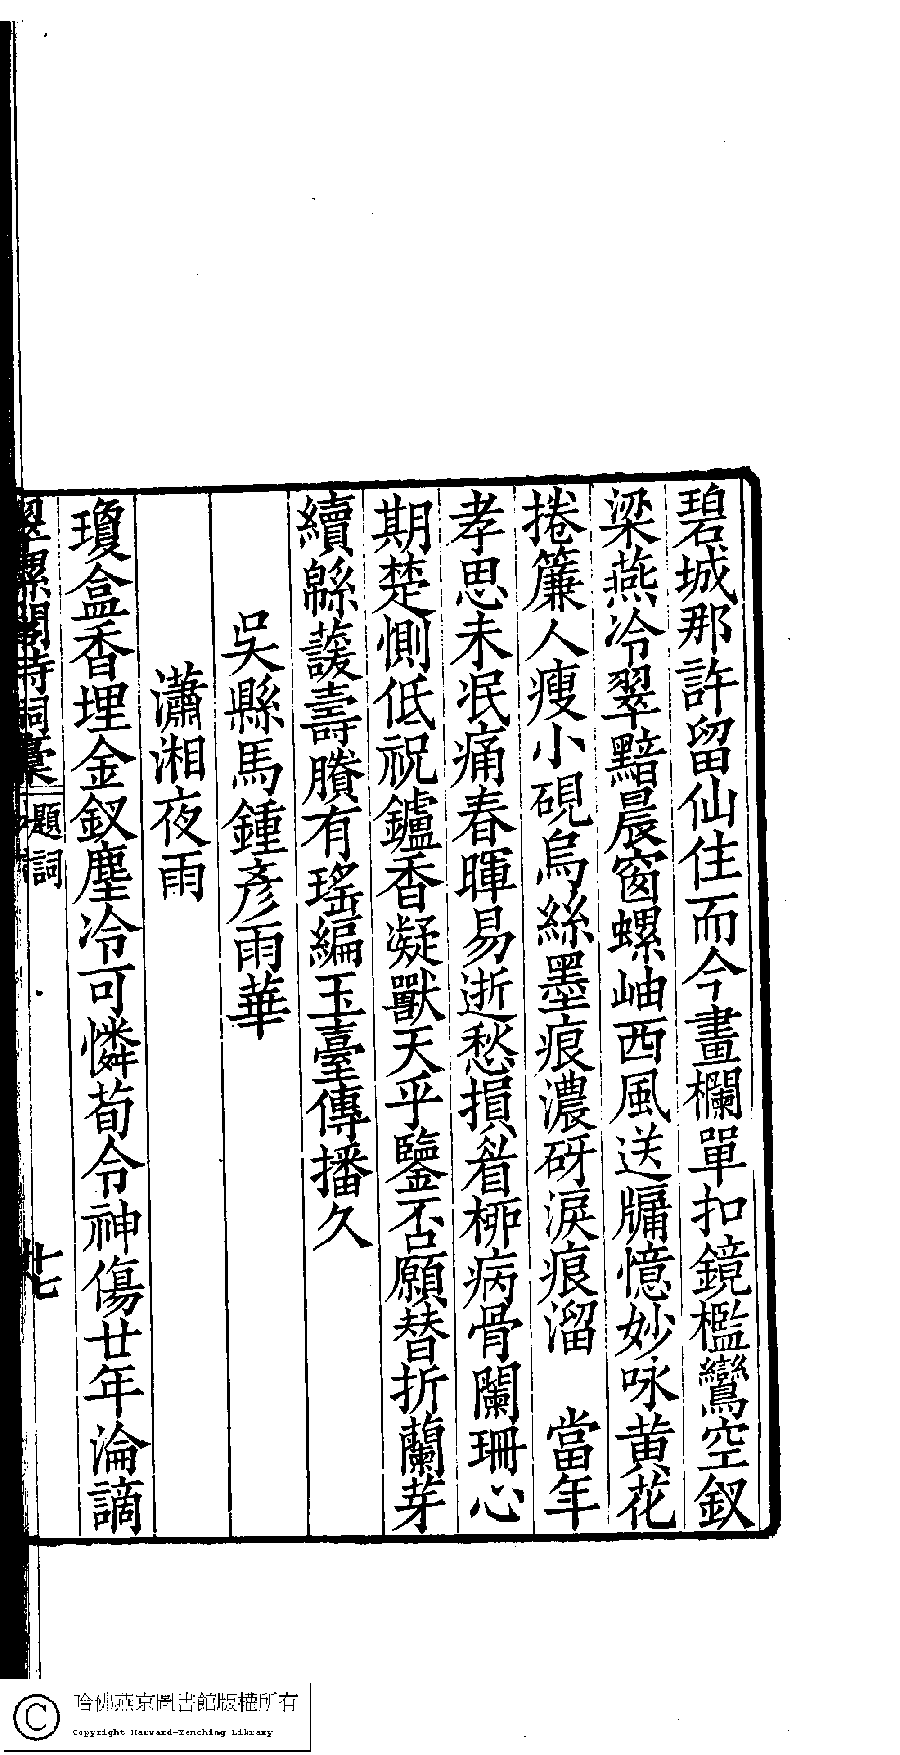 碧城那許留仙住而今畫欄單扣鏡檻鸞空釵
梁燕冷翠黯晨窗螺岫西風送牖憶妙咏黃花
捲簾人瘦小硯烏絲墨痕濃硏淚痕溜　當年
孝思未泯痛春暉易逝愁損眉桺病骨闌珊心
期楚惻低祝鑪香凝獸天乎鑒否願替折蘭芽
續緜護壽賸有瑤編玉臺傳播久
吳縣馬鍾彥雨華
瀟湘夜雨
瓊盒香埋金釵塵冷可憐荀令神傷廿年淪謫
翠螺閣詩詞稾　題詞　廿七
哈佛燕京圖書館版權所有
Copyright Harvard-Yenching Library